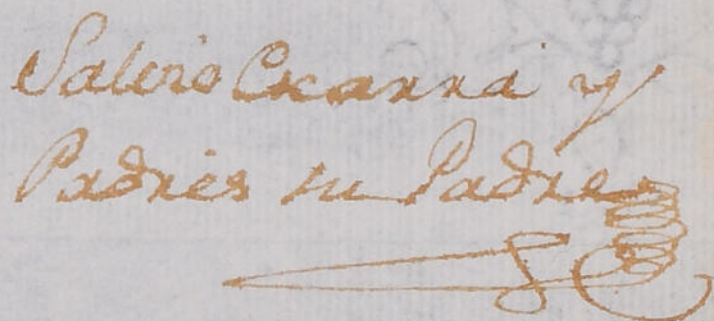 Salerio Cxarra y
Padres su Padre